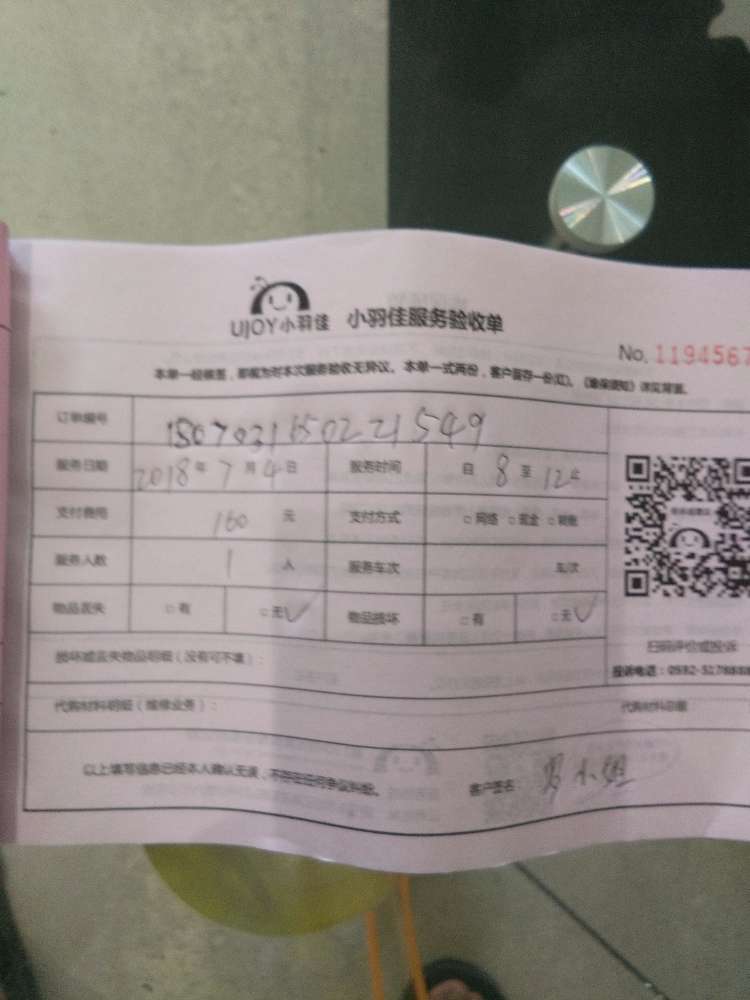 UJOY小羽佳 小羽佳服务验收单
No. 1194567
本单一经核签，即视为对本次服务验收无异议。本单一式两份，客户留存一份(红)。《验保须知》详见背面。
订单编号 180703165022 21549
服务日期 2018年7月4日 服务时间 自8至12点
支付费用 160元 支付方式 □网络 □现金 □转账
服务人数 1人 服务车次 车/次
物品丢失 □有 □无✓ 物品损坏 □有 □无✓
扫码评价或投诉
损坏或丢失物品明细（没有可不填）：
投诉电话：0592-5178888
代购材料明细（维修业务）： 代购材料总额
以上填写信息已经本人确认无误，不存在任何争议纠纷。 客户签名 小姐